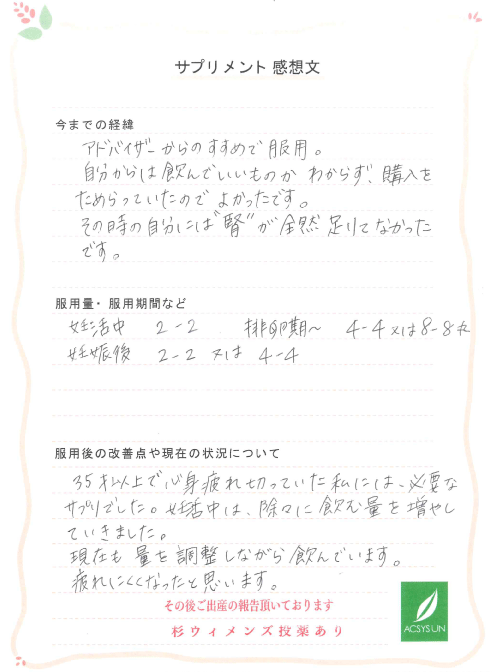 サプリメント 感想文
今までの経緯
アドバイザーからのすすめで服用。
自分からは飲んでいいものか わからず、購入を
ためらっていたので よかったです。
その時の自分には"腎"が全然 足りてなかった
です。
服用量・服用期間など
妊活中 2-2 排卵期〜 4-4又は8-8丸
妊娠後 2-2 又は 4-4
服用後の改善点や現在の状況について
35才以上で心身疲れ切っていた私には、必要な
サプリでした。妊活中は、除々に飲む量を増やし
ていきました。
現在も 量を調整しながら飲んでいます。
疲れにくくなったと思います。
その後ご出産の報告頂いております
杉ウィメンズ投薬あり
ACSYSUN